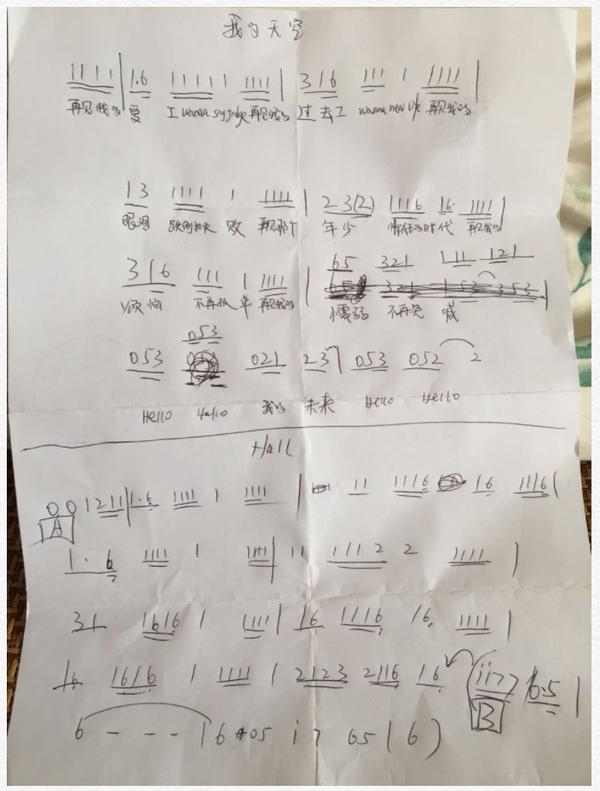 我的天空
1111 | 1.6 11111 1111 | 316 111 1 1111 |
再见我的 爱 I wanna say goodbye 再见我的 过去 I wanna new life 再见我的
13 1111 1 1111 | 23(2) 1116 16. 1111 |
眼泪 跌倒和失 败 再见那个 年少 轻狂的时代 再见我的
65 321 111 121
316 111 1 1111 |
烦恼 不再孤 单 再见我的 懦弱 不再 喊
053
053 021 23 | 053 052 2
Hello Hello 我的 未来 Hello Hello
Hall
A 1211 | 1.6 1111 1 1111 | 11 1116 16 1116 |
1.6 1111 1 1111 | 11 1112 2 1111 |
31 1616 1 1111 | 16 1116 16. 1111 |
16. 1616 1 1111 | 2123 2116 16 B 6.5 |
6 - - - | 6 05 i 7 65 (6)